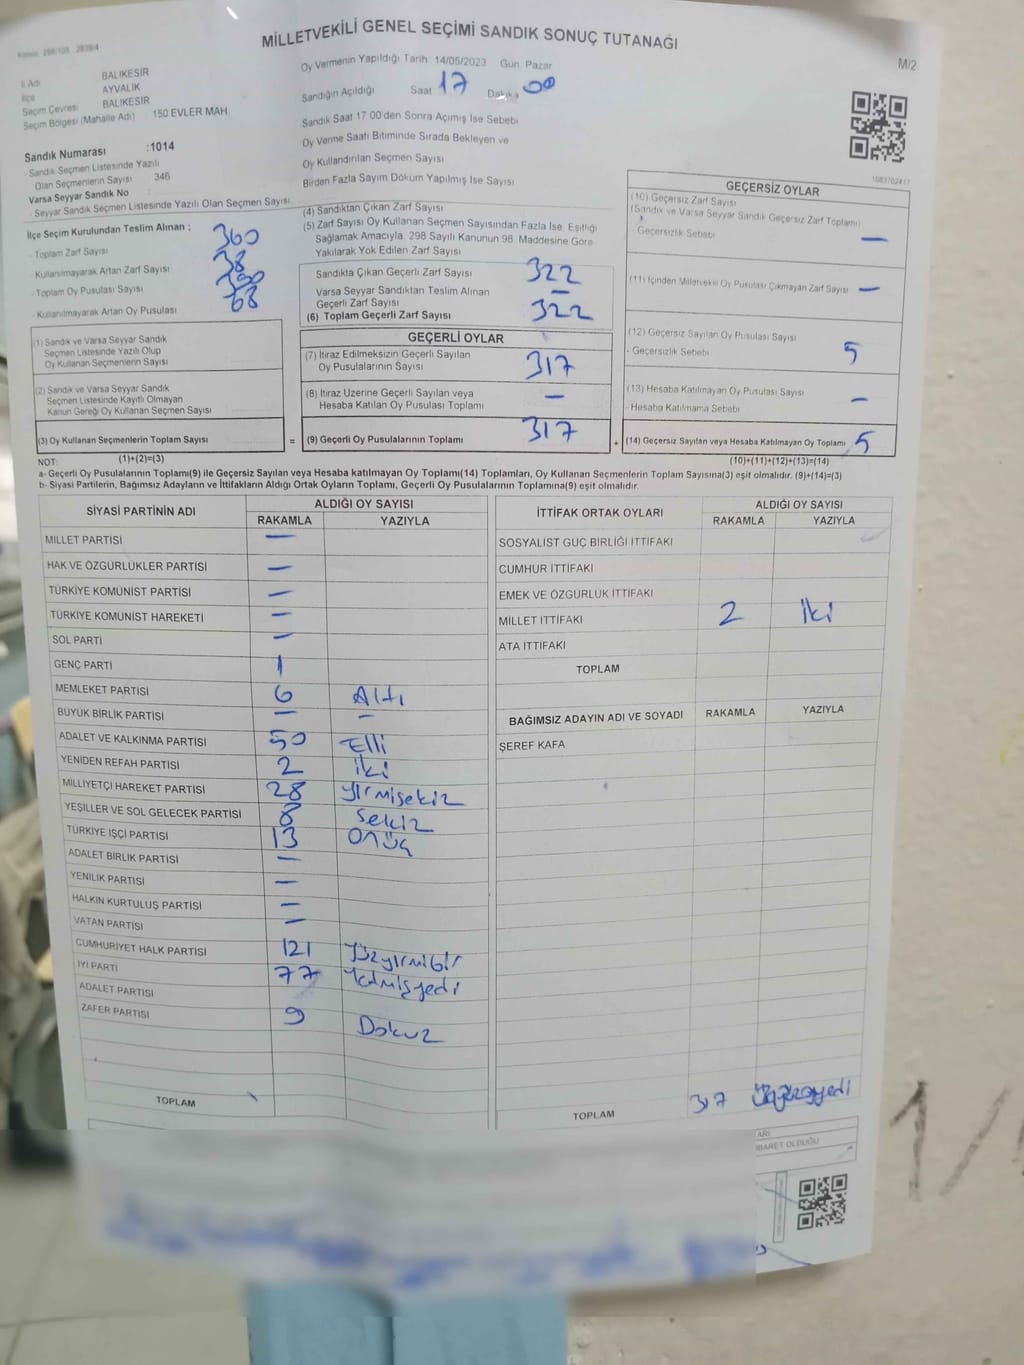 MİLLETVEKİLİ GENEL SEÇİMİ SANDIK SONUÇ TUTANAĞI
M/2
İl Adı BALIKESİR
İlçe AYVALIK
Seçim Çevresi BALIKESİR
Seçim Bölgesi (Mahalle Adı) 150 EVLER MAH.
Oy Vermenin Yapıldığı Tarih 14/05/2023 Gün Pazar
Sandığın Açıldığı Saat 17 Dakika 00
Sandık Saat 17 00'den Sonra Açımış İse Sebebi
Oy Verme Saati Bitiminde Sırada Bekleyen ve
Oy Kullandırılan Seçmen Sayısı
Birden Fazla Sayım Döküm Yapılmış İse Sayısı
Sandık Numarası :1014
- Sandık Seçmen Listesinde Yazılı
Olan Seçmenlerin Sayısı 346
Varsa Seyyar Sandık No
- Seyyar Sandık Seçmen Listesinde Yazılı Olan Seçmen Sayısı
İlçe Seçim Kurulundan Teslim Alınan ;
- Toplam Zarf Sayısı 360
- Kullanılmayarak Artan Zarf Sayısı 38
- Toplam Oy Pusulası Sayısı
- Kullanılmayarak Artan Oy Pusulası 68
(1) Sandık ve Varsa Seyyar Sandık
Seçmen Listesinde Yazılı Olup
Oy Kullanan Seçmenlerin Sayısı
(2) Sandık ve Varsa Seyyar Sandık
Seçmen Listesinde Kayıtlı Olmayan
Kanun Gereği Oy Kullanan Seçmen Sayısı
(3) Oy Kullanan Seçmenlerin Toplam Sayısı =
(1)+(2)=(3)
(4) Sandıktan Çıkan Zarf Sayısı
(5) Zarf Sayısı Oy Kullanan Seçmen Sayısından Fazla İse Eşitliği
Sağlamak Amacıyla. 298 Sayılı Kanunun 98. Maddesine Göre
Yakılarak Yok Edilen Zarf Sayısı
Sandıkta Çıkan Geçerli Zarf Sayısı 322
Varsa Seyyar Sandıktan Teslim Alınan
Geçerli Zarf Sayısı –
(6) Toplam Geçerli Zarf Sayısı 322
GEÇERLİ OYLAR
(7) İtiraz Edilmeksizin Geçerli Sayılan
Oy Pusulalarının Sayısı 317
(8) İtiraz Üzerine Geçerli Sayılan veya
Hesaba Katılan Oy Pusulası Toplamı –
(9) Geçerli Oy Pusulalarının Toplamı 317 +
1083702417
GEÇERSİZ OYLAR
(10) Geçersiz Zarf Sayısı
(Sandık ve Varsa Seyyar Sandık Geçersiz Zarf Toplamı)
- Geçersizlik Sebebi –
(11) İçinden Milletvekili Oy Pusulası Çıkmayan Zarf Sayısı –
(12) Geçersiz Sayılan Oy Pusulası Sayısı
- Geçersizlik Sebebi 5
(13) Hesaba Katılmayan Oy Pusulası Sayısı
- Hesaba Katılmama Sebebi –
(14) Geçersiz Sayılan veya Hesaba Katılmayan Oy Toplamı 5
(10)+(11)+(12)+(13)=(14)
NOT:
a- Geçerli Oy Pusulalarının Toplamı(9) ile Geçersiz Sayılan veya Hesaba katılmayan Oy Toplamı(14) Toplamları, Oy Kullanan Seçmenlerin Toplam Sayısına(3) eşit olmalıdır. (9)+(14)=(3)
b- Siyasi Partilerin, Bağımsız Adayların ve İttifakların Aldığı Ortak Oyların Toplamı, Geçerli Oy Pusulalarının Toplamına(9) eşit olmalıdır.
SİYASİ PARTİNİN ADI ALDIĞI OY SAYISI
RAKAMLA YAZIYLA
MİLLET PARTİSİ –
HAK VE ÖZGÜRLÜKLER PARTİSİ –
TÜRKİYE KOMÜNİST PARTİSİ –
TÜRKİYE KOMÜNİST HAREKETİ –
SOL PARTİ –
GENÇ PARTİ 1
MEMLEKET PARTİSİ 6 Altı
BÜYÜK BİRLİK PARTİSİ – –
ADALET VE KALKINMA PARTİSİ 50 Elli
YENİDEN REFAH PARTİSİ 2 iki
MİLLİYETÇİ HAREKET PARTİSİ 28 yirmisekiz
YEŞİLLER VE SOL GELECEK PARTİSİ 8 sekiz
TÜRKİYE İŞÇİ PARTİSİ 13 onüç
ADALET BİRLİK PARTİSİ –
YENİLİK PARTİSİ –
HALKIN KURTULUŞ PARTİSİ –
VATAN PARTİSİ –
CUMHURİYET HALK PARTİSİ 121 Yüzyirmibir
İYİ PARTİ 77 Yetmişyedi
ADALET PARTİSİ
ZAFER PARTİSİ 9 Dokuz
TOPLAM
İTTİFAK ORTAK OYLARI ALDIĞI OY SAYISI
RAKAMLA YAZIYLA
SOSYALİST GÜÇ BİRLİĞİ İTTİFAKI
CUMHUR İTTİFAKI
EMEK VE ÖZGÜRLÜK İTTİFAKI
MİLLET İTTİFAKI 2 İki
ATA İTTİFAKI
TOPLAM
BAĞIMSIZ ADAYIN ADI VE SOYADI RAKAMLA YAZIYLA
ŞEREF KAFA
TOPLAM 317 Üçyüzonyedi
İBARET OLDUĞU